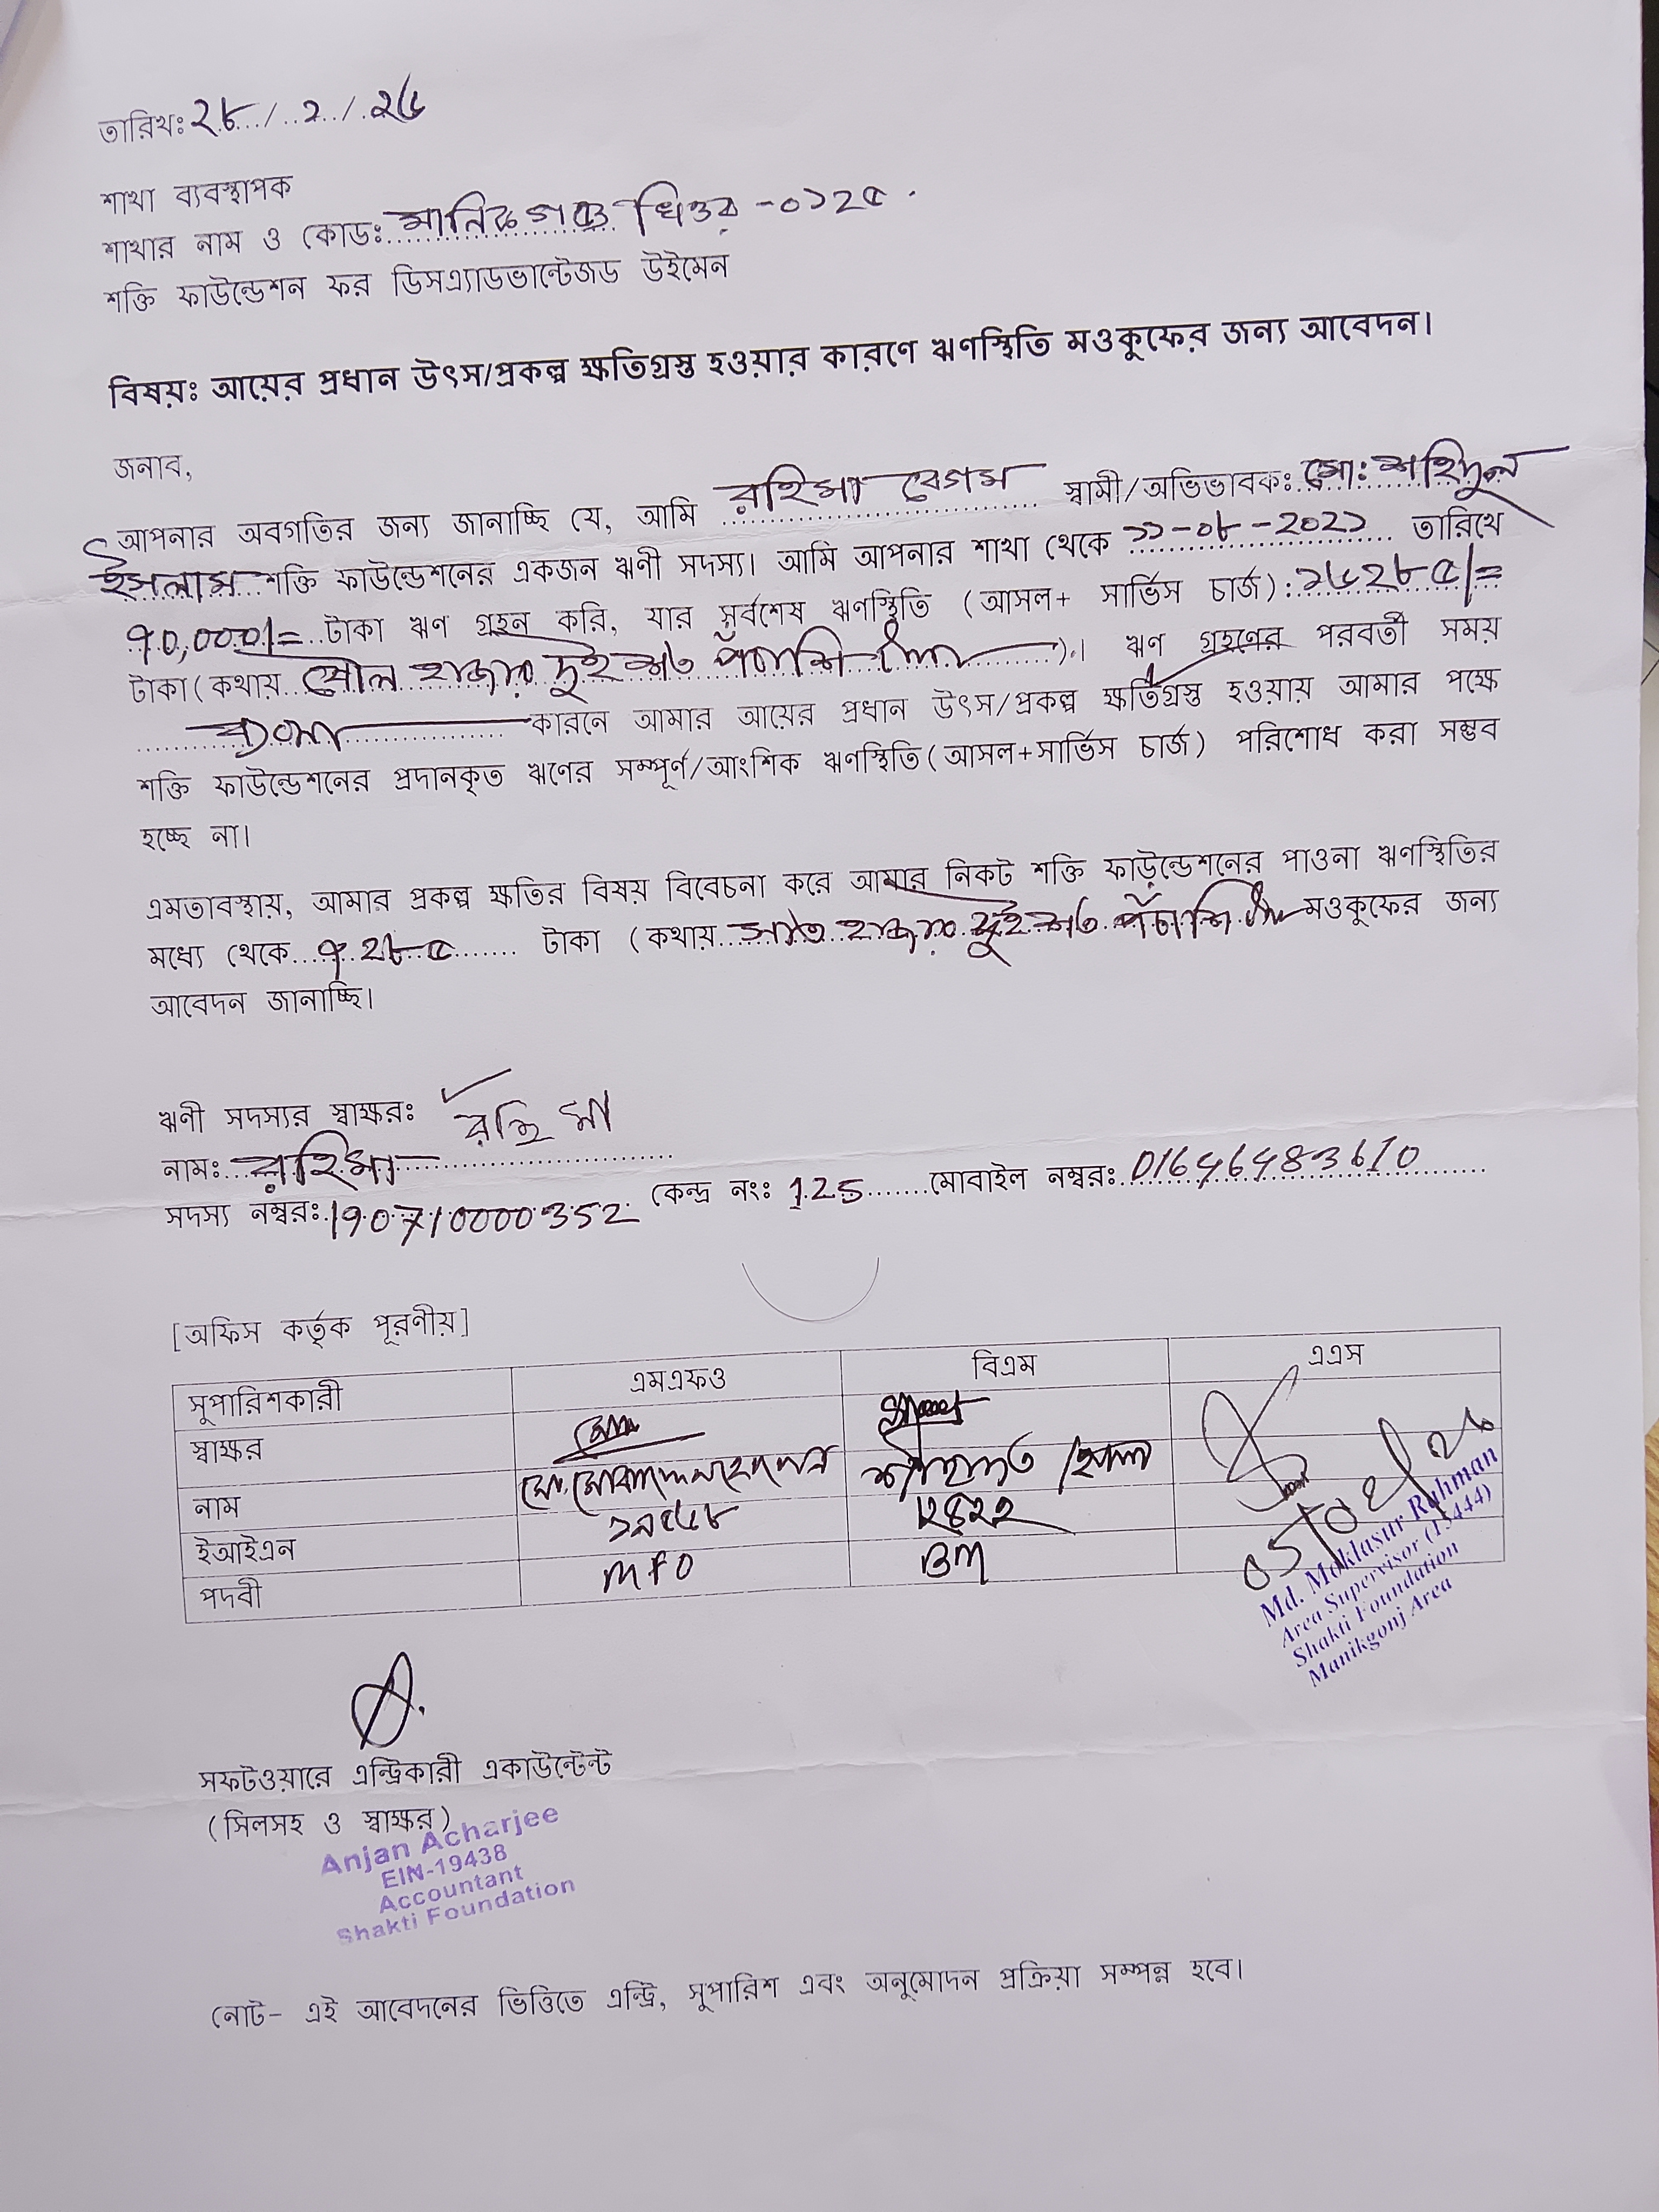 তারিখঃ ২৮/২/২৬
শাখা ব্যবস্থাপক
শাখার নাম ও কোডঃ মানিকগঞ্জ ঘিওর -০১২৫
শক্তি ফাউন্ডেশন ফর ডিসএ্যাডভান্টেজড উইমেন
বিষয়ঃ আয়ের প্রধান উৎস/প্রকল্প ক্ষতিগ্রস্ত হওয়ার কারণে ঋণস্থিতি মওকুফের জন্য আবেদন।
জনাব,
আপনার অবগতির জন্য জানাচ্ছি যে, আমি রহিমা বেগম স্বামী/অভিভাবকঃ মো: শহিদুল
ইসলাম শক্তি ফাউন্ডেশনের একজন ঋণী সদস্য। আমি আপনার শাখা থেকে ১১-০৮-২০২১ তারিখে
৭০,০০০/= টাকা ঋণ গ্রহন করি, যার সর্বশেষ ঋণস্থিতি (আসল+ সার্ভিস চার্জ): ১৬২৮৫/=
টাকা (কথায় ষোল হাজার দুই শত পঁচাশি )। ঋণ গ্রহণের পরবর্তী সময়
কারনে আমার আয়ের প্রধান উৎস/প্রকল্প ক্ষতিগ্রস্ত হওয়ায় আমার পক্ষে
শক্তি ফাউন্ডেশনের প্রদানকৃত ঋণের সম্পূর্ণ/আংশিক ঋণস্থিতি(আসল+সার্ভিস চার্জ) পরিশোধ করা সম্ভব
হচ্ছে না।
এমতাবস্থায়, আমার প্রকল্প ক্ষতির বিষয় বিবেচনা করে আমার নিকট শক্তি ফাউন্ডেশনের পাওনা ঋণস্থিতির
মধ্যে থেকে ৭২৮৫ টাকা (কথায় সাত হাজার দুই শত পঁচাশি মওকুফের জন্য
আবেদন জানাচ্ছি।
ঋণী সদস্যর স্বাক্ষরঃ রহিমা
নামঃ রহিমা
সদস্য নম্বরঃ 190710000352 কেন্দ্র নংঃ 125 মোবাইল নম্বরঃ 01646483610
[অফিস কর্তৃক পূরণীয়]
সুপারিশকারী এমএফও বিএম এএস
স্বাক্ষর
নাম
ইআইএন ১৯৫৬৮
পদবী MFO BM
Md. Moklasur Rahman
Area Supervisor (13444)
Shakti Foundation
Manikgonj Area
সফটওয়ারে এন্ট্রিকারী একাউন্টেন্ট
(সিলসহ ও স্বাক্ষর)
Anjan Acharjee
EIN-19438
Accountant
Shakti Foundation
নোট- এই আবেদনের ভিত্তিতে এন্ট্রি, সুপারিশ এবং অনুমোদন প্রক্রিয়া সম্পন্ন হবে।